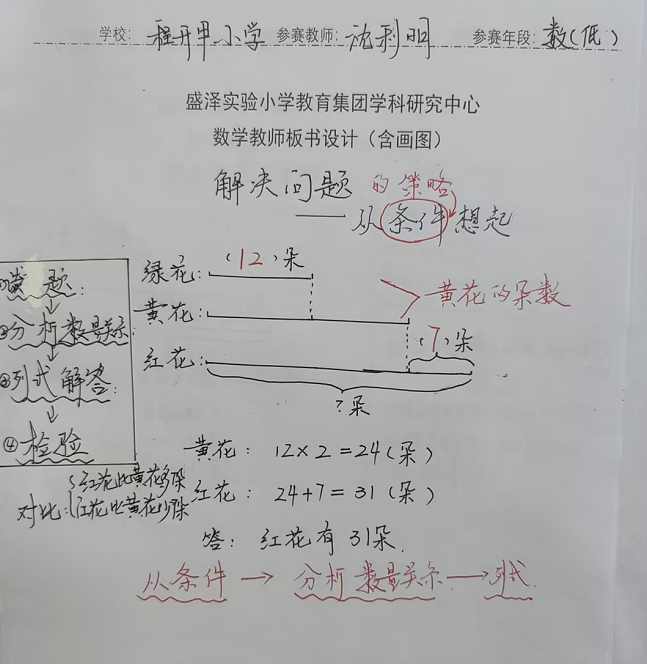 学校: 程开甲小学 参赛教师: 沈利明 参赛年段: 数(低)
盛泽实验小学教育集团学科研究中心
数学教师板书设计（含画图）
解决问题的策略
——从条件想起
绿花: (12)朵
黄花: 黄花的朵数
(7)朵
红花:
?朵
①读题
↓
②分析数量关系
↓
③列式解答
↓
④检验
黄花: 12×2=24(朵)
红花: 24+7=31(朵)
对比: 红花比黄花多7朵
红花比黄花少7朵
答: 红花有31朵.
从条件 → 分析数量关系 → 列式.